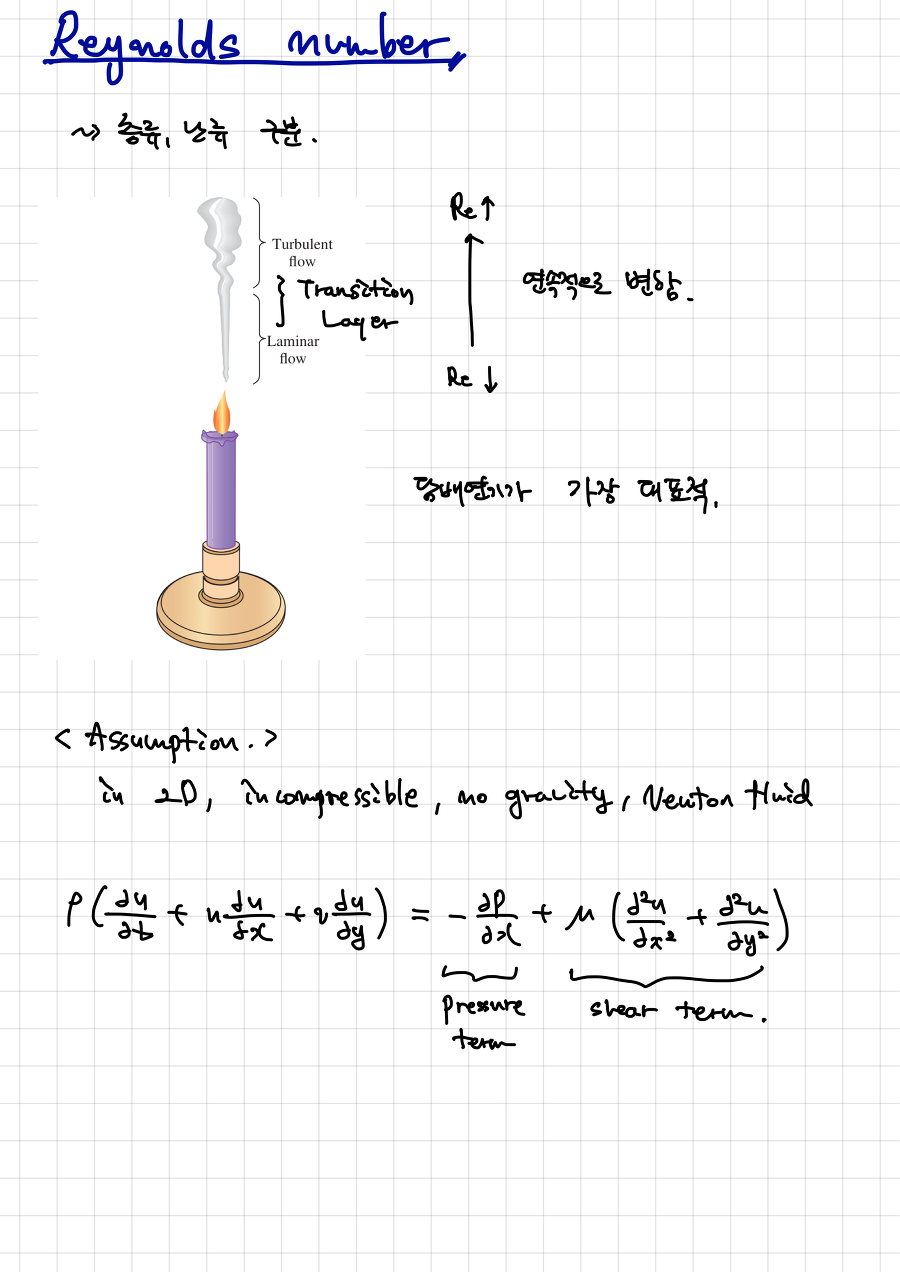 Reynolds number.
~> 층류, 난류 구분.
Turbulent
flow
} Transition
Layer
Laminar
flow
Re ↑
연속적으로 변함.
Re ↓
담배연기가 가장 대표적.
< Assumption. >
in 2D, incompressible, no gravity, Newton fluid
ρ(∂u/∂t + u ∂u/∂x + v ∂u/∂y) = - ∂P/∂x + μ (∂²u/∂x² + ∂²u/∂y²)
Pressure
term
shear term.